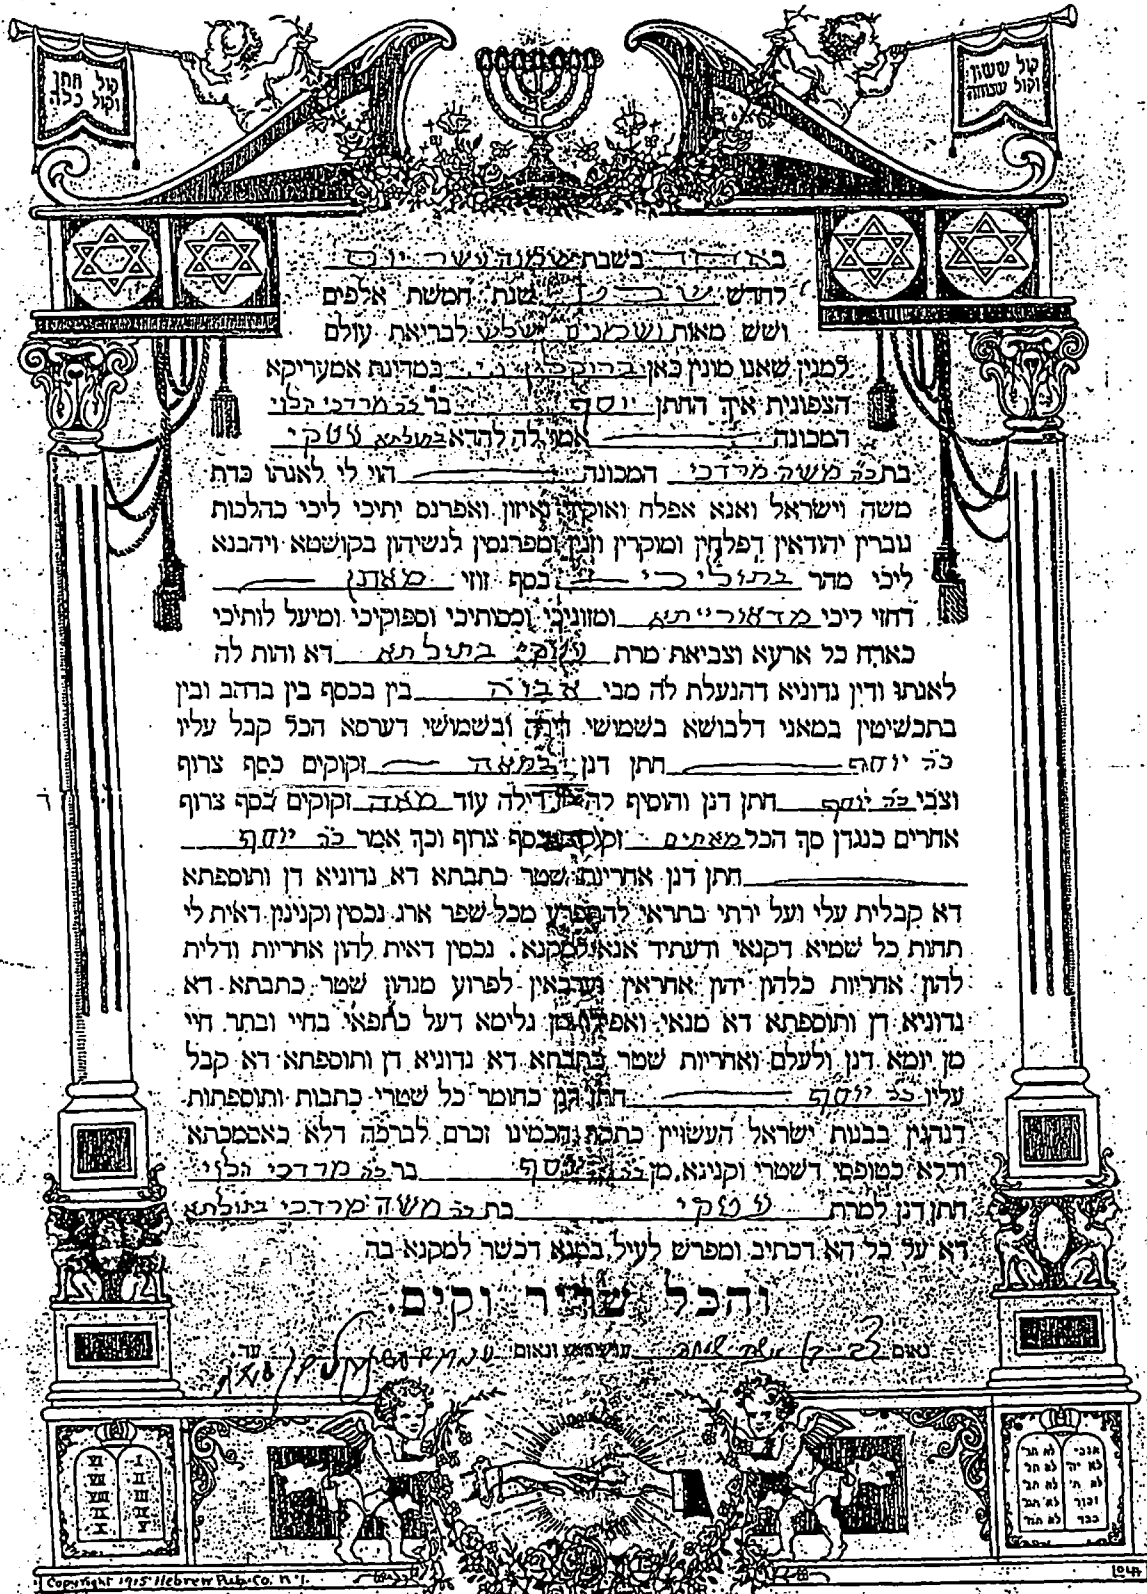 קול חתן
וקול כלה
קול ששון
וקול שמחה
באחד בשבת שמנה עשר יום
לחדש שבט שנת חמשת אלפים
ושש מאות ושבעים ושלש לבריאת עולם
למנין שאנו מונין כאן ברוקלין נ.י. במדינת אמעריקא
הצפונית איך החתן יוסף בר כה מרדכי הלוי
המכונה אמר לה להדא בתולתא עטקי
בת כה משה מרדכי המכונה הוי לי לאנתו כדת
משה וישראל ואנא אפלח ואוקיר ואיזון ואפרנס יתיכי ליכי כהלכות
גוברין יהודאין דפלחין ומוקרין וזנין ומפרנסין לנשיהון בקושטא ויהבנא
ליכי מהר בתוליכי כסף זוזי מאתן
דחזי ליכי מדאורייתא ומזוניכי וכסותיכי וספוקיכי ומיעל לותיכי
כארח כל ארעא וצביאת מרת עטקי בתולתא דא והות לה
לאנתו ודין נדוניא דהנעלת לה מבי אבוה בין בכסף בין בדהב ובין
בתכשיטין במאני דלבושא בשמושי דירה ובשמושי דערסא הכל קבל עליו
כה יוסף חתן דנן במאה זקוקים כסף צרוף
וצבי כה יוסף חתן דנן והוסיף לה מן דילה עוד מאה זקוקים כסף צרוף
אחרים כנגדן סך הכל מאתים זקוקים כסף צרוף וכך אמר כה יוסף
חתן דנן אחריות שטר כתבתא דא נדוניא דן ותוספתא
דא קבלית עלי ועל ירתי בתראי להתפרע מכל שפר ארג נכסין וקנינין דאית לי
תחות כל שמיא דקנאי ודעתיד אנא למקנא. נכסין דאית להון אחריות ודלית
להון אחריות כלהון יהון אחראין וערבאין לפרוע מנהון שטר כתבתא דא
נדוניא דן ותוספתא דא מנאי ואפילו מן גלימא דעל כתפאי בחיי ובתר חיי
מן יומא דנן ולעלם ואחריות שטר כתבתא דא נדוניא דן ותוספתא דא קבל
עליו כה יוסף חתן דנן כחומר כל שטרי כתבות ותוספתות
דנהגין בבנות ישראל העשויין כתקת חכמינו זכרם לברכה דלא כאסמכתא
ודלא כטופסי דשטרי וקנינא מן כה יוסף בר כה מרדכי הלוי
חתן דנן למרת עטקי בת כה משה מרדכי בתולתא
דא על כל הא דכתיב ומפרש לעיל במנא דכשר למקנא בה
והכל שריר וקים.
נאום צבי בן ונאום עד
I II III
VI VII
אנכי לא תר
לא יה
Copyright 1915 Hebrew Pub. Co. N.Y.